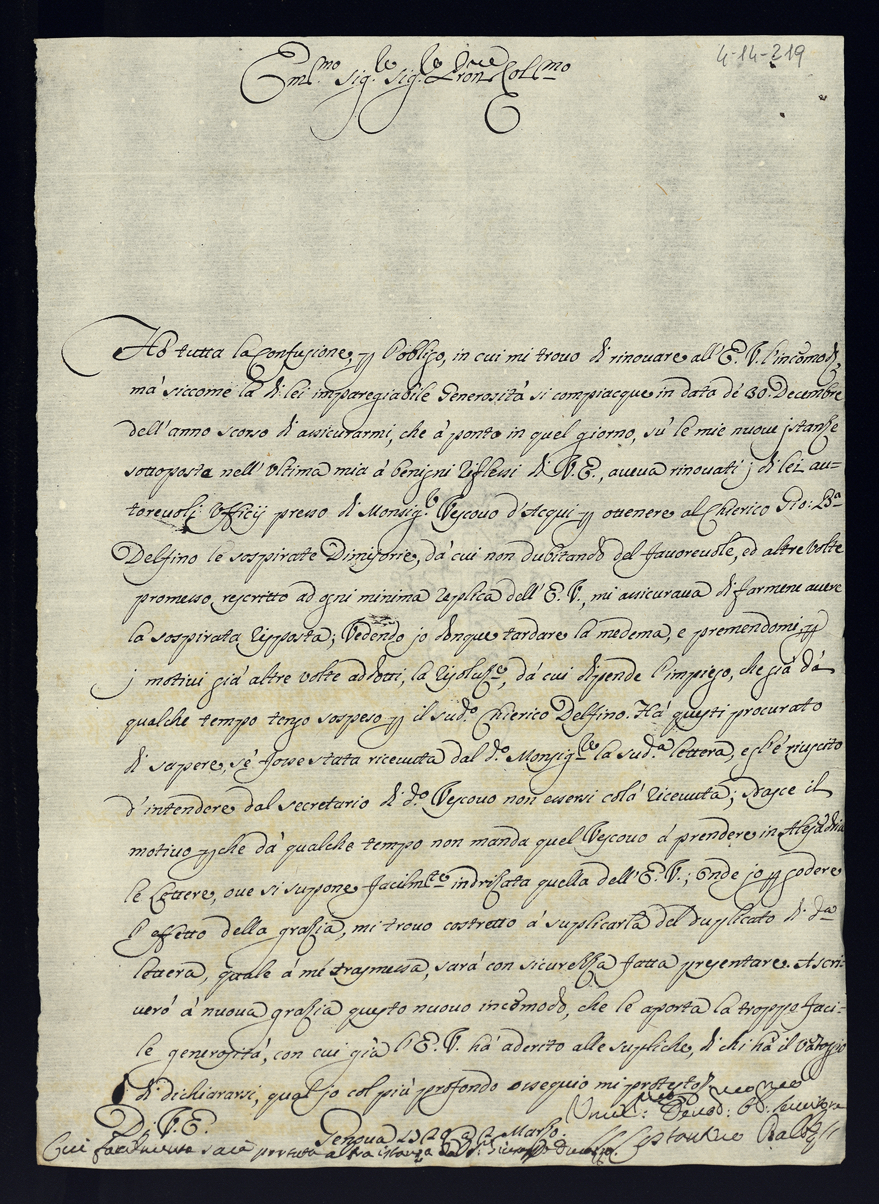 4-14-219
Em.mo Sig.re Sig.re Pron.e Col.mo
Hò tutta la Confusione, p l'obligo, in cui mi trovo di rinovare all'E. V. l'incomodo,
mà siccome la di lei impareggiabile Generosità si compiacque in data de 30. Decembre
dell'anno scorso di assicurarmi, che à ponto in quel giorno, sù le mie nuove jstanze
sottoposte nell'ultima mia à benigni riflessi di V. E., aueua rinouati j di lei au=
toreuoli Vfficij presso di Monsig.r Vescouo d'Acqui p ottenere al Chierico Gio: B.a
Delfino le sospirate Dimissorie, dà cui non dubitando del fauoreuole, ed altre volte
promesso rescritto ad ogni minima replica dell'E. V., mi assicuraua di farmene auere
la sospirata risposta; Vedendo jo donque tardare la medema, e premendomi, p
j motiui già altre volte addotti, la risoluz.e, dà cui dipende l'impiego, che già dà
qualche tempo tengo sospeso p il sud.o Chierico Delfino. Hà questi procurato
di sapere, sè fosse stata riceuuta dal d.o Monsig.re la sud.a lettera, e gl'è riuscito
d'intendere dal secretario di d.o Vescouo non essersi colà riceuuta; nasce il
motiuo p che dà qualche tempo non manda quel Vescouo à prendere in Alesādria
le Lettere, oue si supone facilm.te indrizata quella dell'E. V.; onde jo p godere
l'effetto della grazia, mi trouo costretto à suplicarla del duplicato di d.a
lettera, quale à mè trasmessa, sarà con sicurezza fatta presentare. Ascri=
uerò à nuova grazia questo nuouo incōmodo, che le aporta la troppo faci=
le generosità, con cui già l'E. V. hà aderito alle supliche, di chi hà il vātaggio
di dichiararsi, qual jo col più profondo ossequio mi protesto
Di V. E.
Genova 1729 Marzo
Costantino Balbi